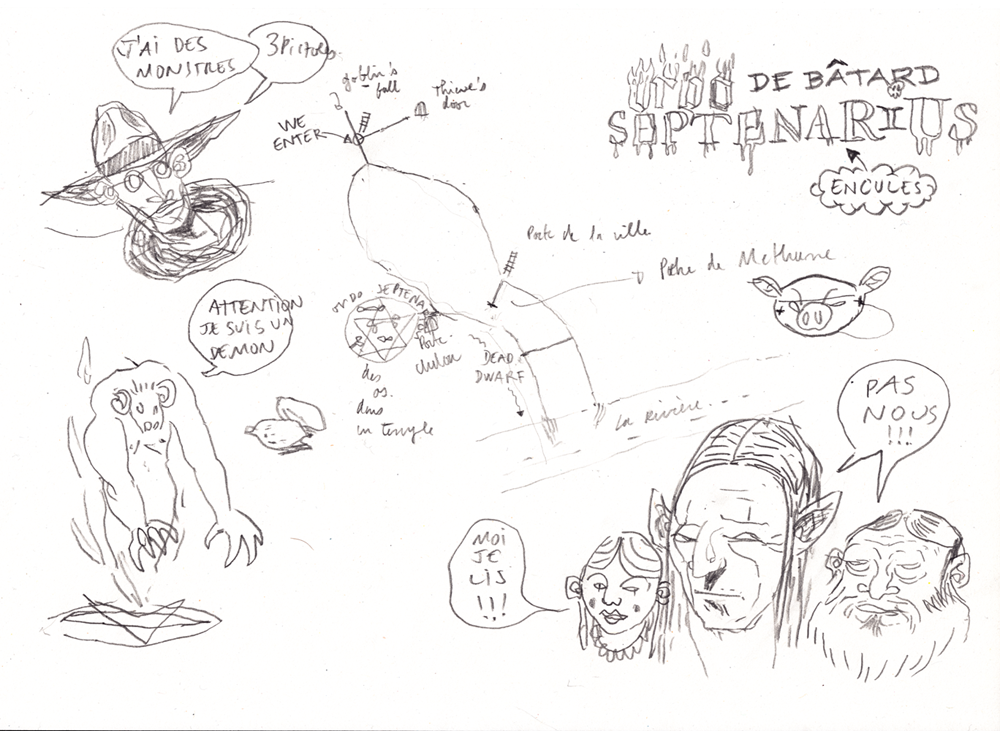 J'AI DES
MONSTRES
3 Pictures.
goblin's
fall
Thieve's
door
WE
ENTER
ORDO DE BÂTARD
SEPTENARIUS
ENCULES
Porte de la ville
Poche de Methane
ATTENTION
JE SUIS UN
DEMON
ORDO SEPTENA
Porte
des
os
dans
un temple
DEAD
DWARF
La Rivière...
PAS
NOUS
!!!
MOI
JE
LIS
!!!